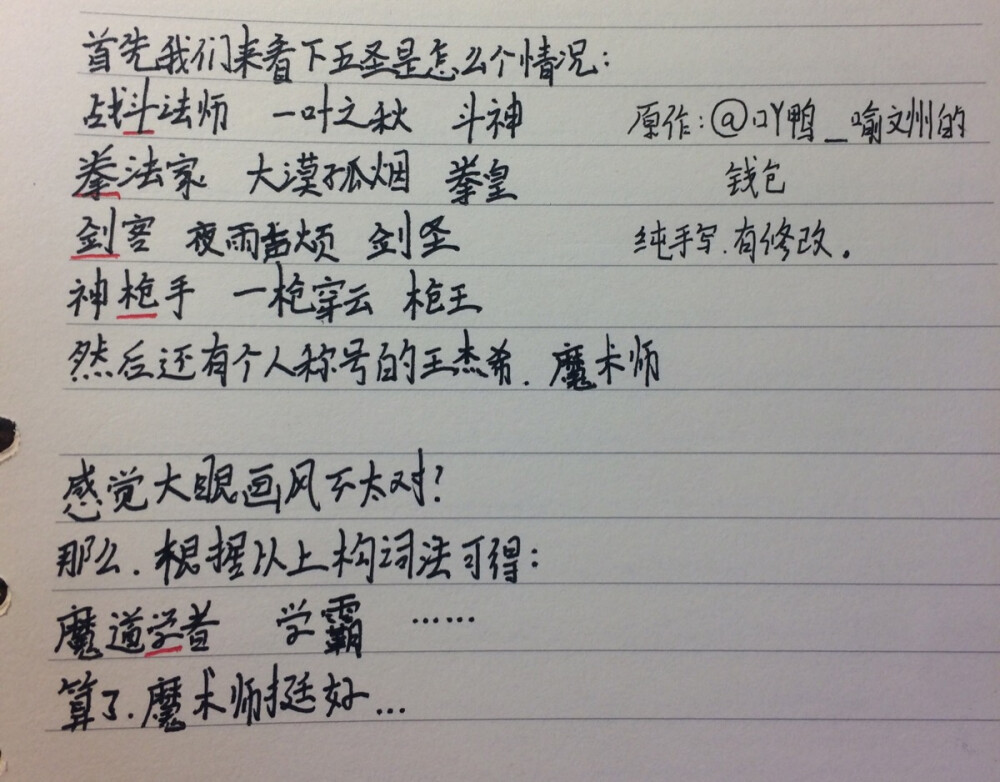 首先我们来看下五圣是怎么个情况：
战斗法师 一叶之秋 斗神
原作：@吖鸭_喻文州的
钱包
拳法家 大漠孤烟 拳皇
剑客 夜雨声烦 剑圣
纯手写.有修改。
神枪手 一枪穿云 枪王
然后还有个人称号的王杰希.魔术师
感觉大眼画风不太对？
那么.根据以上构词法可得：
魔道学者 学霸 ……
算了.魔术师挺好…